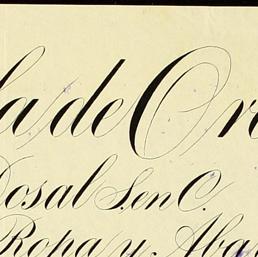 la de Or
Dosal S. en C.
Ropa y. Aba